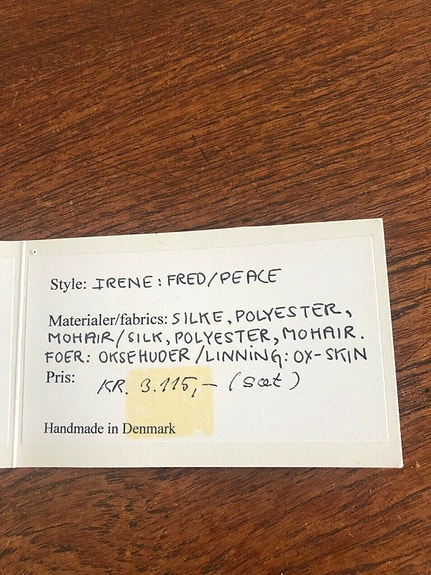 Style: IRENE: FRED/PEACE
Materialer/fabrics: SILKE, POLYESTER,
MOHAIR/SILK, POLYESTER, MOHAIR.
FOER: OKSEHUDER/LINNING: OX-SKIN
Pris: KR. 3.115,- (sæt)
Handmade in Denmark